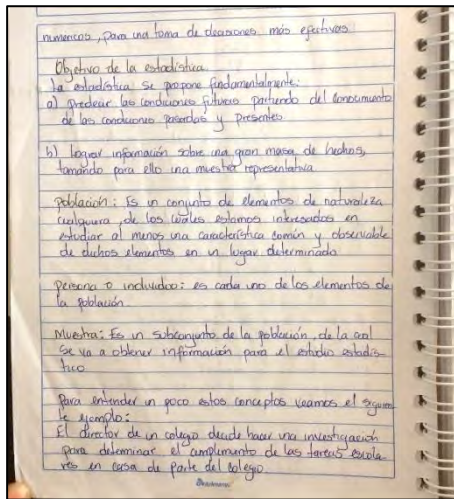 numericos, para una toma de decisiones más efectivas
Objetivo de la estadística
La estadística se propone fundamentalmente:
a) Predecir las condiciones futuras partiendo del conocimiento
de las condiciones pasadas y presentes
b) Lograr información sobre una gran masa de hechos,
tomando para ello una muestra representativa
Población: Es un conjunto de elementos de naturaleza
cualquiera, de los cuales estamos interesados en
estudiar al menos una característica común y observable
de dichos elementos en un lugar determinado
Persona o individuo: es cada uno de los elementos de
la población
Muestra: Es un subconjunto de la población, de la cual
se va a obtener información para el estudio estadís-
tico
Para entender un poco estos conceptos veamos el siguien
te ejemplo:
El director de un colegio decide hacer una investigación
para determinar el cumplimiento de las tareas escola-
res en casa de parte del colegio.